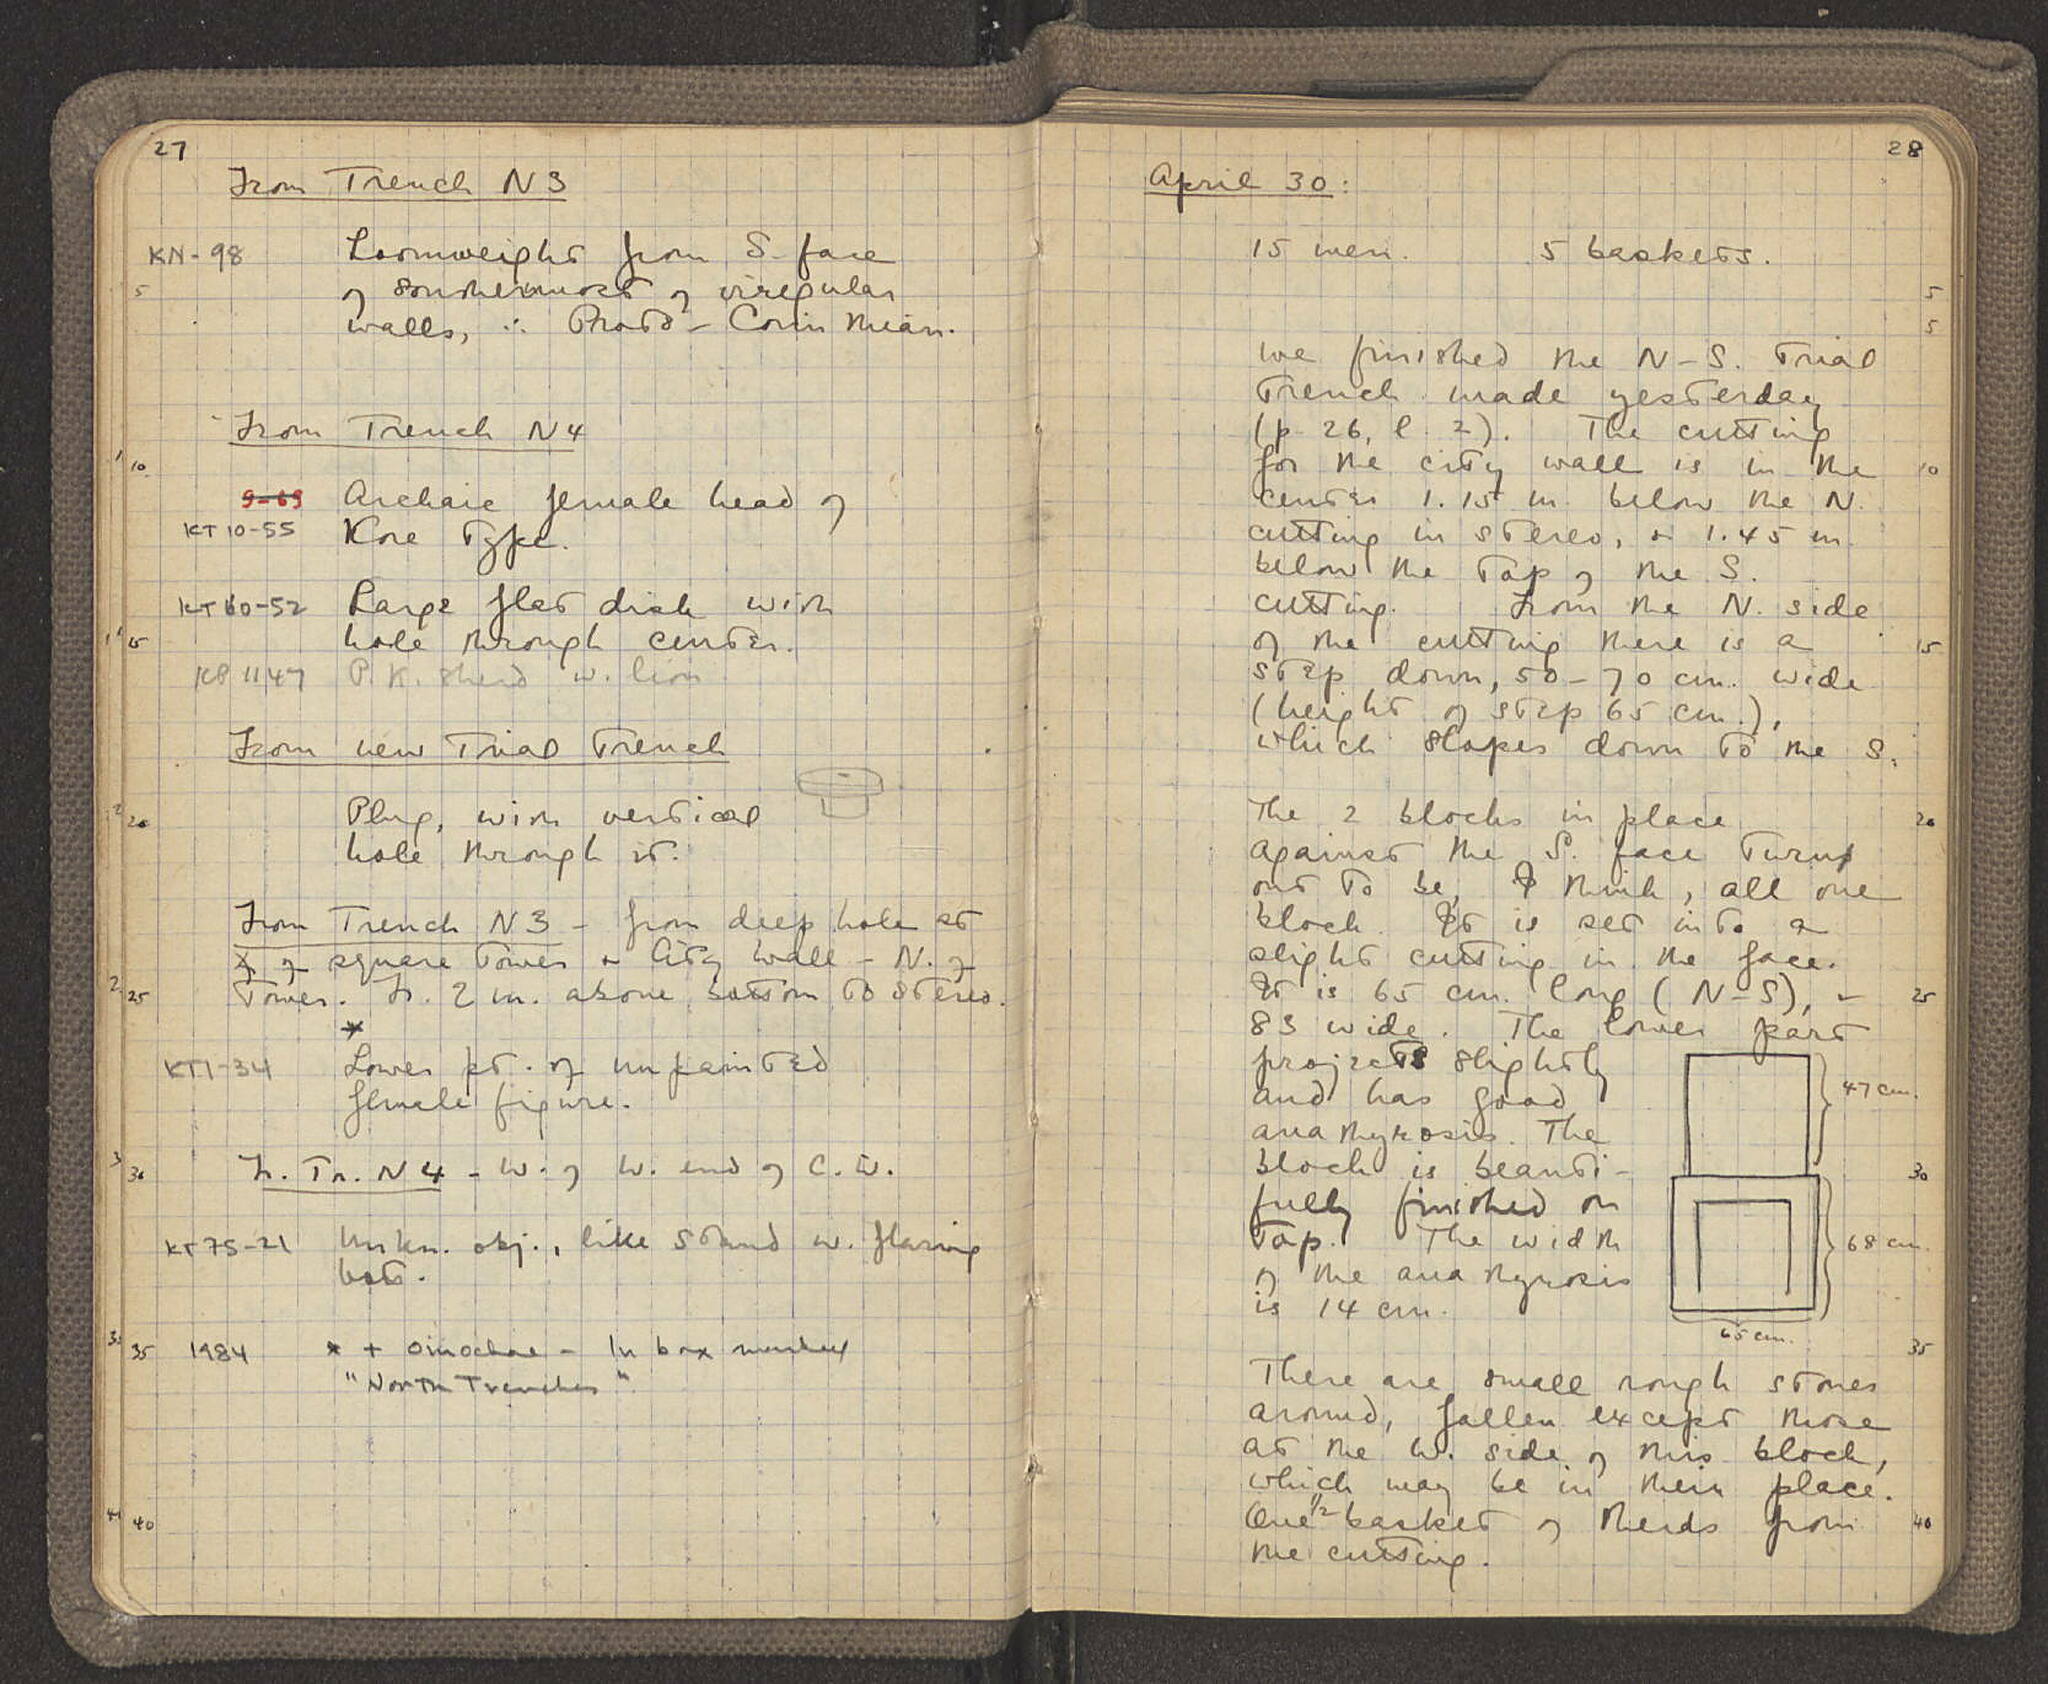 27
From Trench N3
KN-98 Loomweight from S. face
5 of southernmost of irregular
walls, ∴ Proto-Corinthian.
From Trench N4
10
9-69 Archaic female head of
KT 10-55 Kore type.
KT 60-52 Large flat disk with
15 hole through center.
KP 1147 P.K. sherd w. lion
From new Trial Trench
20 Plug, with vertical
hole through it.
From Trench N3 - from deep hole at
of square Tower + City Wall - N. of
25 Tower. Fr. 2 m. above bottom to stereo.
*
KT1-34 Lower pt. of unpainted
female figure.
30 Fr. Tr. N4 - W. of W. end of C.W.
KT75-21 Unkn. obj., like stand w. flaring
bot.
35 1984 * + oinochoe - In box marked
"North Trenches"
40
28
April 30:
15 men. 5 baskets.
5
5
We finished the N-S. Trial
Trench made yesterday
(p 26, l. 2). The cutting
for the city wall is in the 10
center 1.15 m. below the N.
cutting in stereo, + 1.45 m.
below the top of the S.
cutting. From the N. side
of the cutting there is a 15
step down, 50-70 cm. wide
(height of step 65 cm.),
which slopes down to the S.
The 2 blocks in place 20
against the S. face turn
out to be, I think, all one
block. It is set into a
slight cutting in the face.
It is 65 cm. long (N-S), + 25
83 wide. The lower part
projects slightly
and has good
anathyrosis. The
block is beauti- 30
fully finished on
top. The width
of the anathyrosis
is 14 cm.
47 cm.
68 cm.
65 cm.
35
There are small rough stones
around, fallen except those
at the W. side of this block,
which may be in their place.
One 1/2 basket of sherds from 40
the cutting.